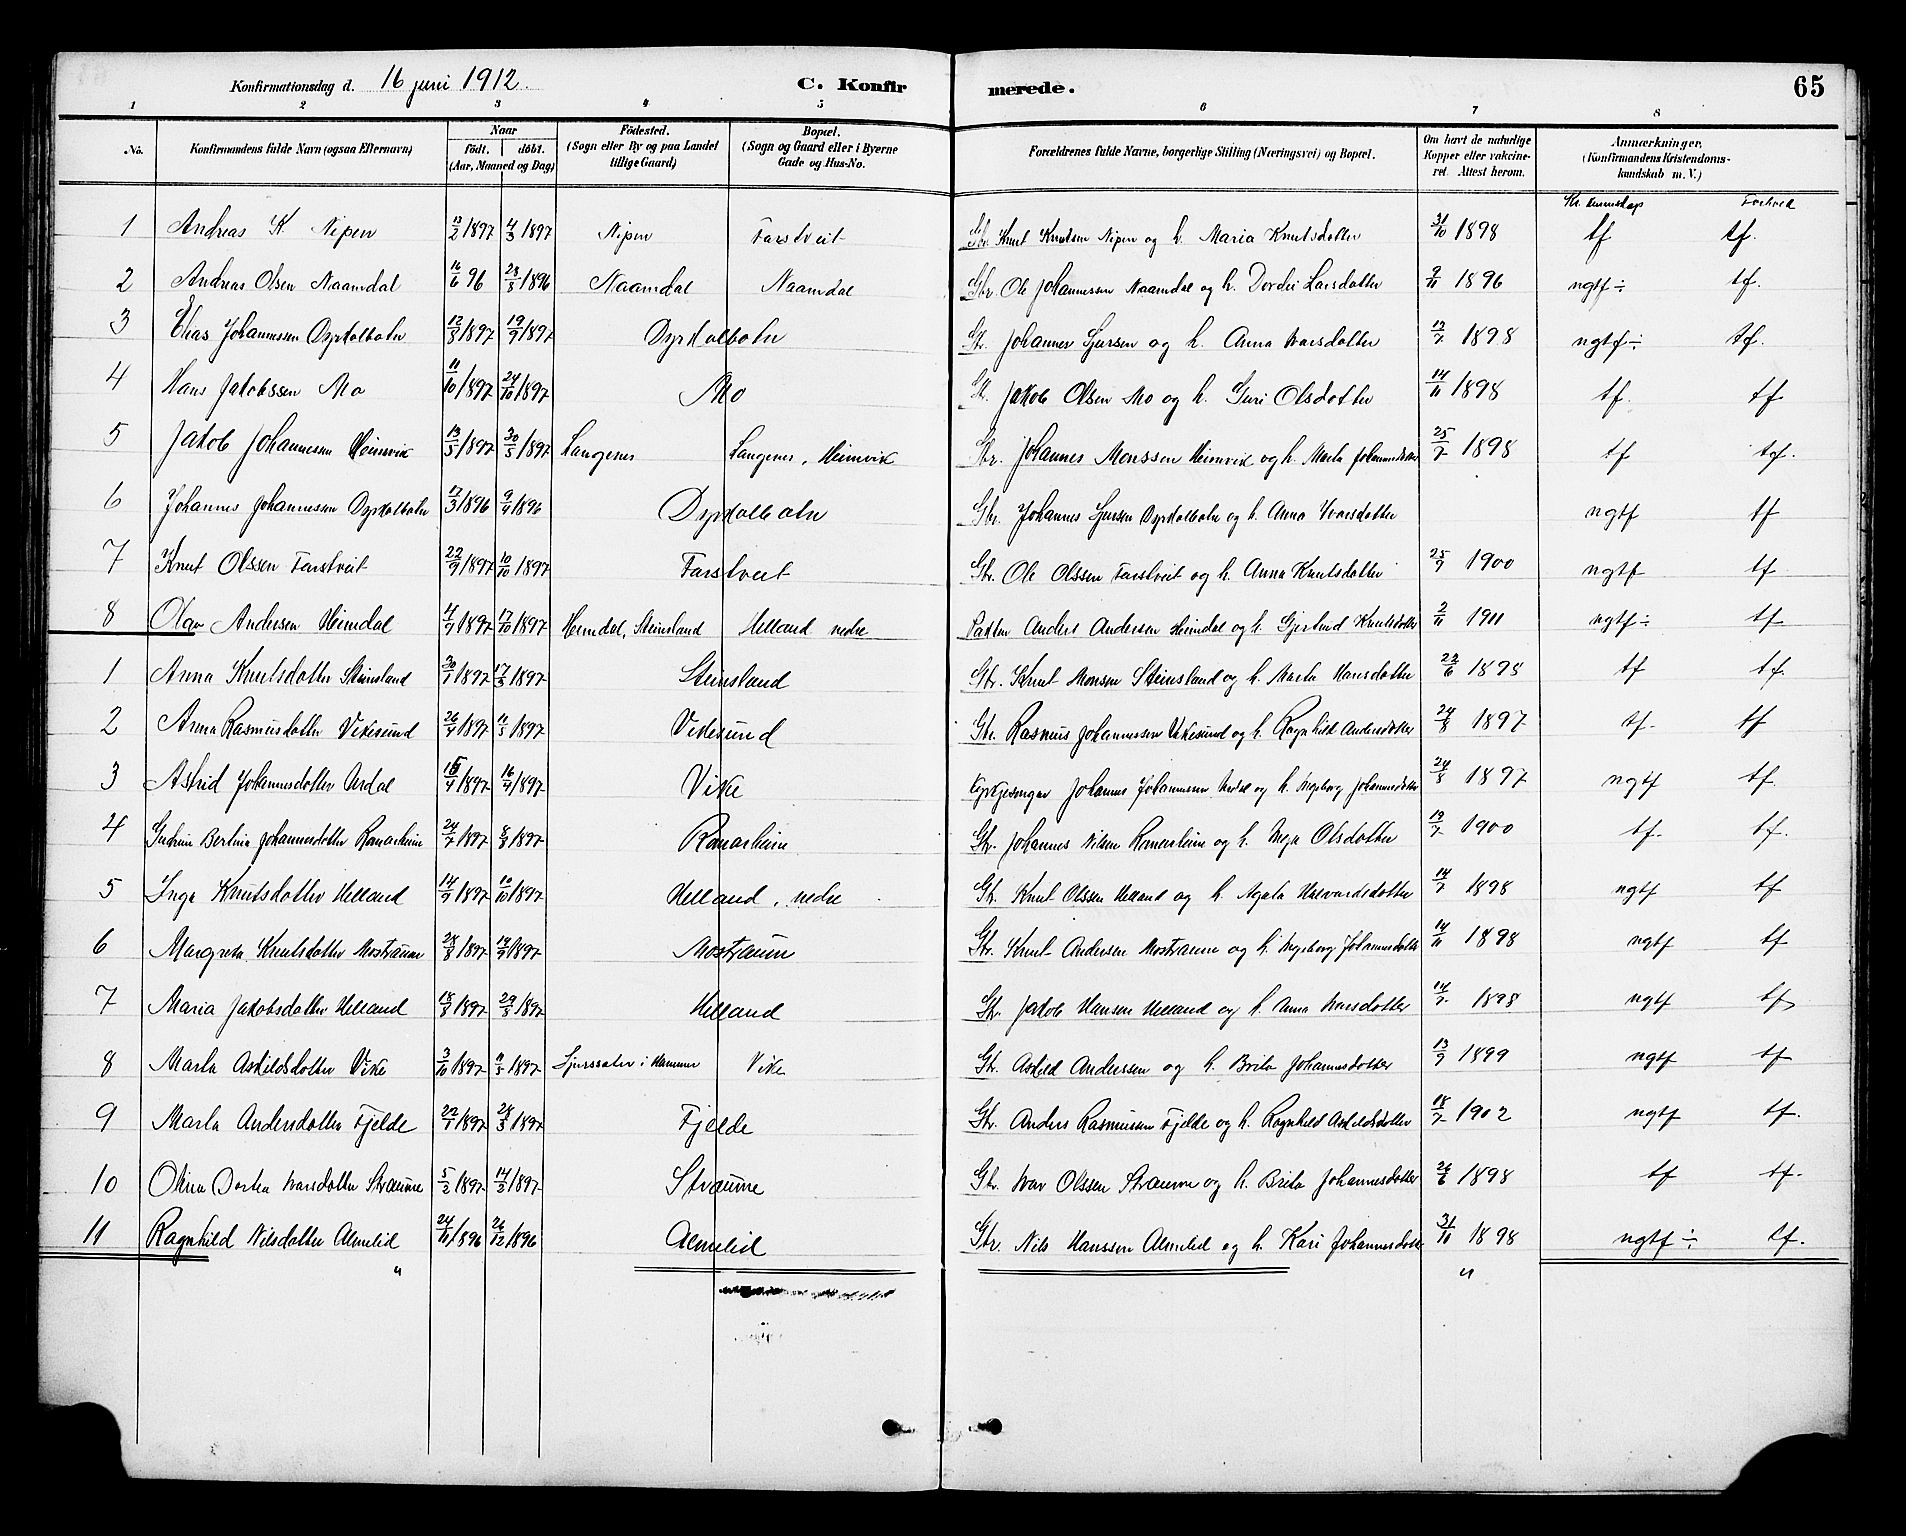 Konfirmationsdag d. 16 juni 1912. C. Konfirmerede. 65
1 2 3 4 5 6 7 8
No. Konfirmandens fulde Navn (ogsaa Efternavn) Naar födt. döbt. (Aar, Maaned og Dag) Födested. (Sogn eller By og paa Landet tillige Gaard) Bopæl. (Sogn og Gaard eller i Byerne Gade og Hus-No. Forældrenes fulde Navne, borgerlige Stilling (Næringsvei) og Bopæl. Om havt de naturlige Kopper eller vakcineret Attest herom. Anmærkninger, (Konfirmandens Kristendomskundskab m. V.)
Kr. kunnskap Forhold
1 Andreas K. Nipen 13/2 1897 4/3 1897 Nipen Farstveit Gbr. Knut Knutsen Nipen og h. Maria Knutsdotter 31/10 1898 tf tf.
2 Andreas Olsen Naamdal 16/6 96 23/8 1896 Naamdal Naamdal Gbr. Ole Johannessen Naamdal og h. Dordei Larsdotter 9/11 1896 ngtf ÷ tf.
3 Elias Johannessen Dyrkolbotn 12/8 1897 19/9 1897 Dyrkolbotn Gbr. Johannes Sjursen og h. Anna Ivarsdotter 12/7 1898 ngtf ÷ tf.
4 Hans Jakobssen Mo 11/10 1897 24/10 1897 Mo Gbr. Jakob Olsen Mo og h. Guri Olsdotter 14/11 1898 tf. tf
5 Jakob Johannessen Heimvik 13/5 1897 30/5 1897 Langenes Langenes, Heimvik Gbr. Johannes Monssen Heimvik og h. Marta Johannesdotter 25/7 1898 tf tf.
6 Johannes Johannessen Dyrkolbotn 17/3 1896 9/4 1896 Dyrkolbotn Gbr. Johannes Sjursen Dyrkolbotn og h. Anna Ivarsdotter ngtf tf
7 Knut Olssen Farstveit 22/9 1897 10/10 1897 Farstveit Gbr. Ole Olssen Farstveit og h. Anna Knutsdotter 25/9 1900 ngtf tf
8 Olav Andersen Heimdal 4/9 1897 17/10 1897 Heimdal, Steinsland Helland nedre Anders Andersen Heimdal og h. Gjertrud Knutsdotter 2/11 1911 ngtf ÷ tf
1 Anna Knutsdotter Steinsland 30/1 1897 17/3 1897 Steinsland Gbr. Knut Monsen Steinsland og h. Marta Hansdotter 22/6 1898 tf tf.
2 Anna Rasmusdotter Vikesund 26/4 1897 11/5 1897 Vikesund Gbr. Rasmus Johannessen Vikesund og h. Ragnhild Andersdotter 24/8 1897 tf. tf
3 Astrid Johannesdotter Ardal 15/4 1897 16/4 1897 Vike Kyrkjesongar Johannes Johannessen Ardal og h. Ingeborg Johannesdotter 24/8 1897 ngtf tf.
4 Gudrun Bertina Johannesdotter Romarheim 24/7 1897 8/8 1897 Romarheim Gbr. Johannes Nilsen Romarheim og h. Olsdotter 13/7 1900 tf. tf.
5 Inga Knutsdotter Helland 14/9 1897 10/10 1897 Helland, nedre Gbr. Knut Olssen Helland og h. Agata Halvardsdotter 14/7 1898 ngtf tf
6 Margreta Knutsdotter Mostraum 28/8 1897 19/9 1897 Mostraum Gbr. Knut Andersen Mostraum og h. Ingeborg Johannesdotter 14/11 1898 ngtf tf
7 Maria Jakobsdotter Helland 18/3 1897 29/3 1897 Helland Gbr. Jakob Hansen Helland og h. Anna Ivarsdotter 14/7 1898 ngtf tf
8 Marta Askildsdotter Vike 3/10 1897 11/5 1897 Sjurssæter i Hammer Vike Gbr. Askild Anderssen og h. Brita Johannesdotter 13/9 1899 ngtf tf
9 Marta Andersdotter Fjelde 22/1 1897 28/3 1897 Fjelde Gbr. Anders Rasmussen Fjelde og h. Ragnhild Askildsdotter 18/7 1902 ngtf tf.
10 Olina Dortea Ivarsdotter Straume 5/2 1897 14/2 1897 Straume Gbr. Ivar Olssen Straume og h. Brita Johannesdotter 26/6 1898 tf tf.
11 Ragnhild Nilsdotter Almelid 24/11 1896 26/12 1896 Almelid Gbr. Nils Hanssen Almelid og h. Kari Johannesdotter 31/10 1898 ngtf ÷ tf.
" "